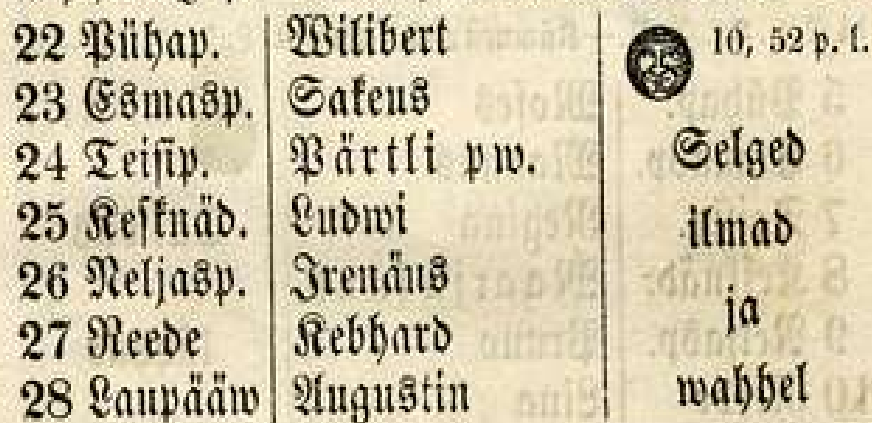 22 Pühap. Wilibert 10, 52 p. l.
23 Esmasp. Sakeus
24 Teisip. Pärtli pw. Selged
25 Kesknäd. Ludwi ilmad
26 Neljasp. Irenäus
27 Reede Kebhard ja
28 Laupääw Augustin wahhel